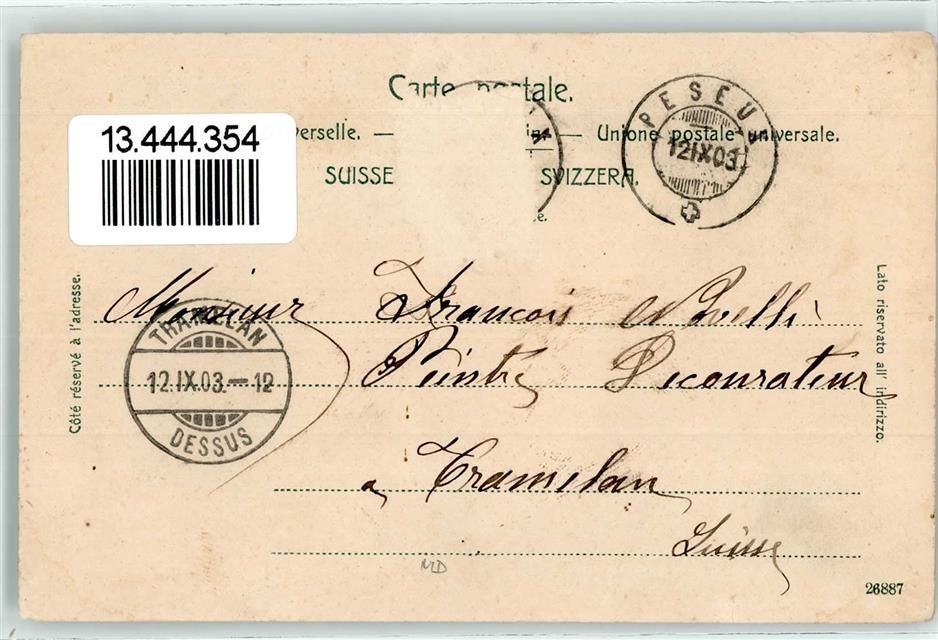 Carte postale.
13.444.354
verselle. — — Unione postale universale.
SUISSE SVIZZERA.
PESEUX
12 IX 03
Côté réservé à l'adresse.
Lato riservato all' indirizzo.
Monsieur Francois Novelli
Peintre Decourateur
a Tramelan
Suisse
TRAMELAN
12.IX.03.—12
DESSUS
MD
26887